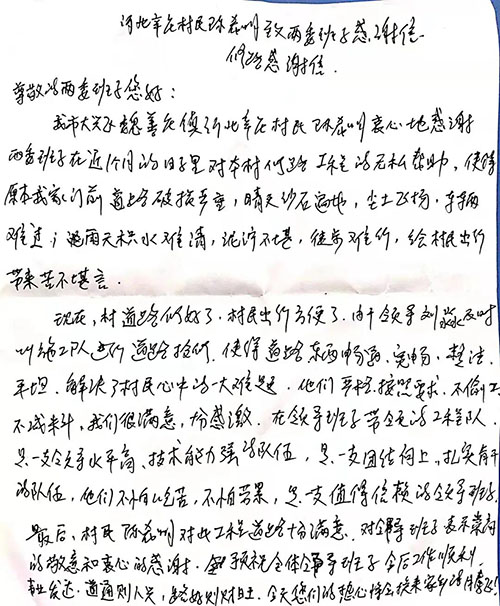 河北辛庄村民陈荔州致两委班子感谢信
修路感谢信.
尊敬的两委班子您好：
我市大兴区魏善庄镇河北辛庄村民陈荔州衷心地感谢
两委班子在近1个月的日子里对本村修路工程的无私帮助，使得
原本我家门前道路破损严重，晴天沙石遍地，尘土飞扬，车辆
难过；遇雨天积水难清，泥泞不堪，徒步难行，给村民出行
带来苦不堪言.
现在，村道路修好了，村民出行方便了.由于领导刘淼及时
叫施工队进行道路抢修，使得道路东西畅通，宽畅，整洁.
平坦，解决了村民心中的一大难题.他们严格按照要求，不偷工
不减料，我们很满意，十分感激.在领导班子带领的工程队.
是一支领导水平高、技术能力强的队伍，是一支团结向上、扎实肯干
的队伍，他们不怕吃苦，不怕劳累，是一支值得信赖的领导班子.
最后，村民陈荔州对此工程道路十分满意，对领导班子表示崇高
的敬意和衷心的感谢.预祝全体领导班子今后工作顺利，
事业发达.道通则人兴，路好则财旺.今天您们的热心将会换来家乡